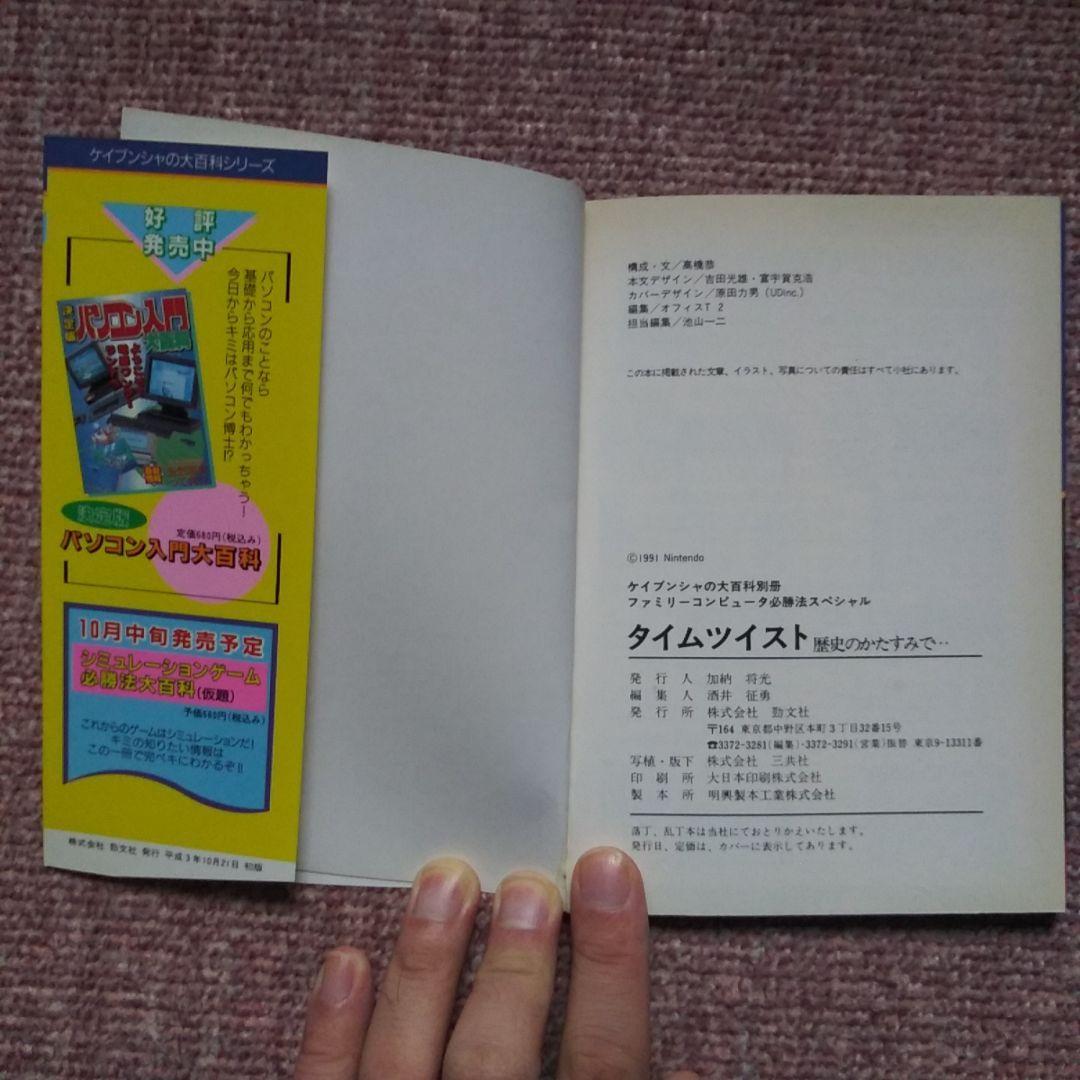 ケイブンシャの大百科シリーズ
好評
発売中
パソコンのことなら
基礎から応用まで何でもわかっちゃう!
今日からキミはパソコン博士!?
決定版
パソコン入門
大百科
決定版
定価680円(税込み)
パソコン入門大百科
10月中旬発売予定
シミュレーションゲーム
必勝法大百科(仮題)
予価680円(税込み)
これからのゲームはシミュレーションだ!
キミの知りたい情報は
この一冊で完ペキにわかるぞ!!
株式会社 勁文社 発行 平成3年10月21日 初版
構成・文/高橋恭
本文デザイン/吉田光雄・富宇賀克浩
カバーデザイン/原田力男(UDInc.)
編集/オフィスT2
担当編集/池山一二
この本に掲載された文章、イラスト、写真についての責任はすべて小社にあります。
©1991 Nintendo
ケイブンシャの大百科別冊
ファミリーコンピュータ必勝法スペシャル
タイムツイスト 歴史のかたすみで…
発行人 加納 将光
編集人 酒井 征勇
発行所 株式会社 勁文社
〒164 東京都中野区本町3丁目32番15号
☎3372-3281(編集)・3372-3291(営業)振替 東京9-13311番
写植・版下 株式会社 三共社
印刷所 大日本印刷株式会社
製本所 明興製本工業株式会社
落丁、乱丁本は当社にておとりかえいたします。
発行日、定価は、カバーに表示してあります。